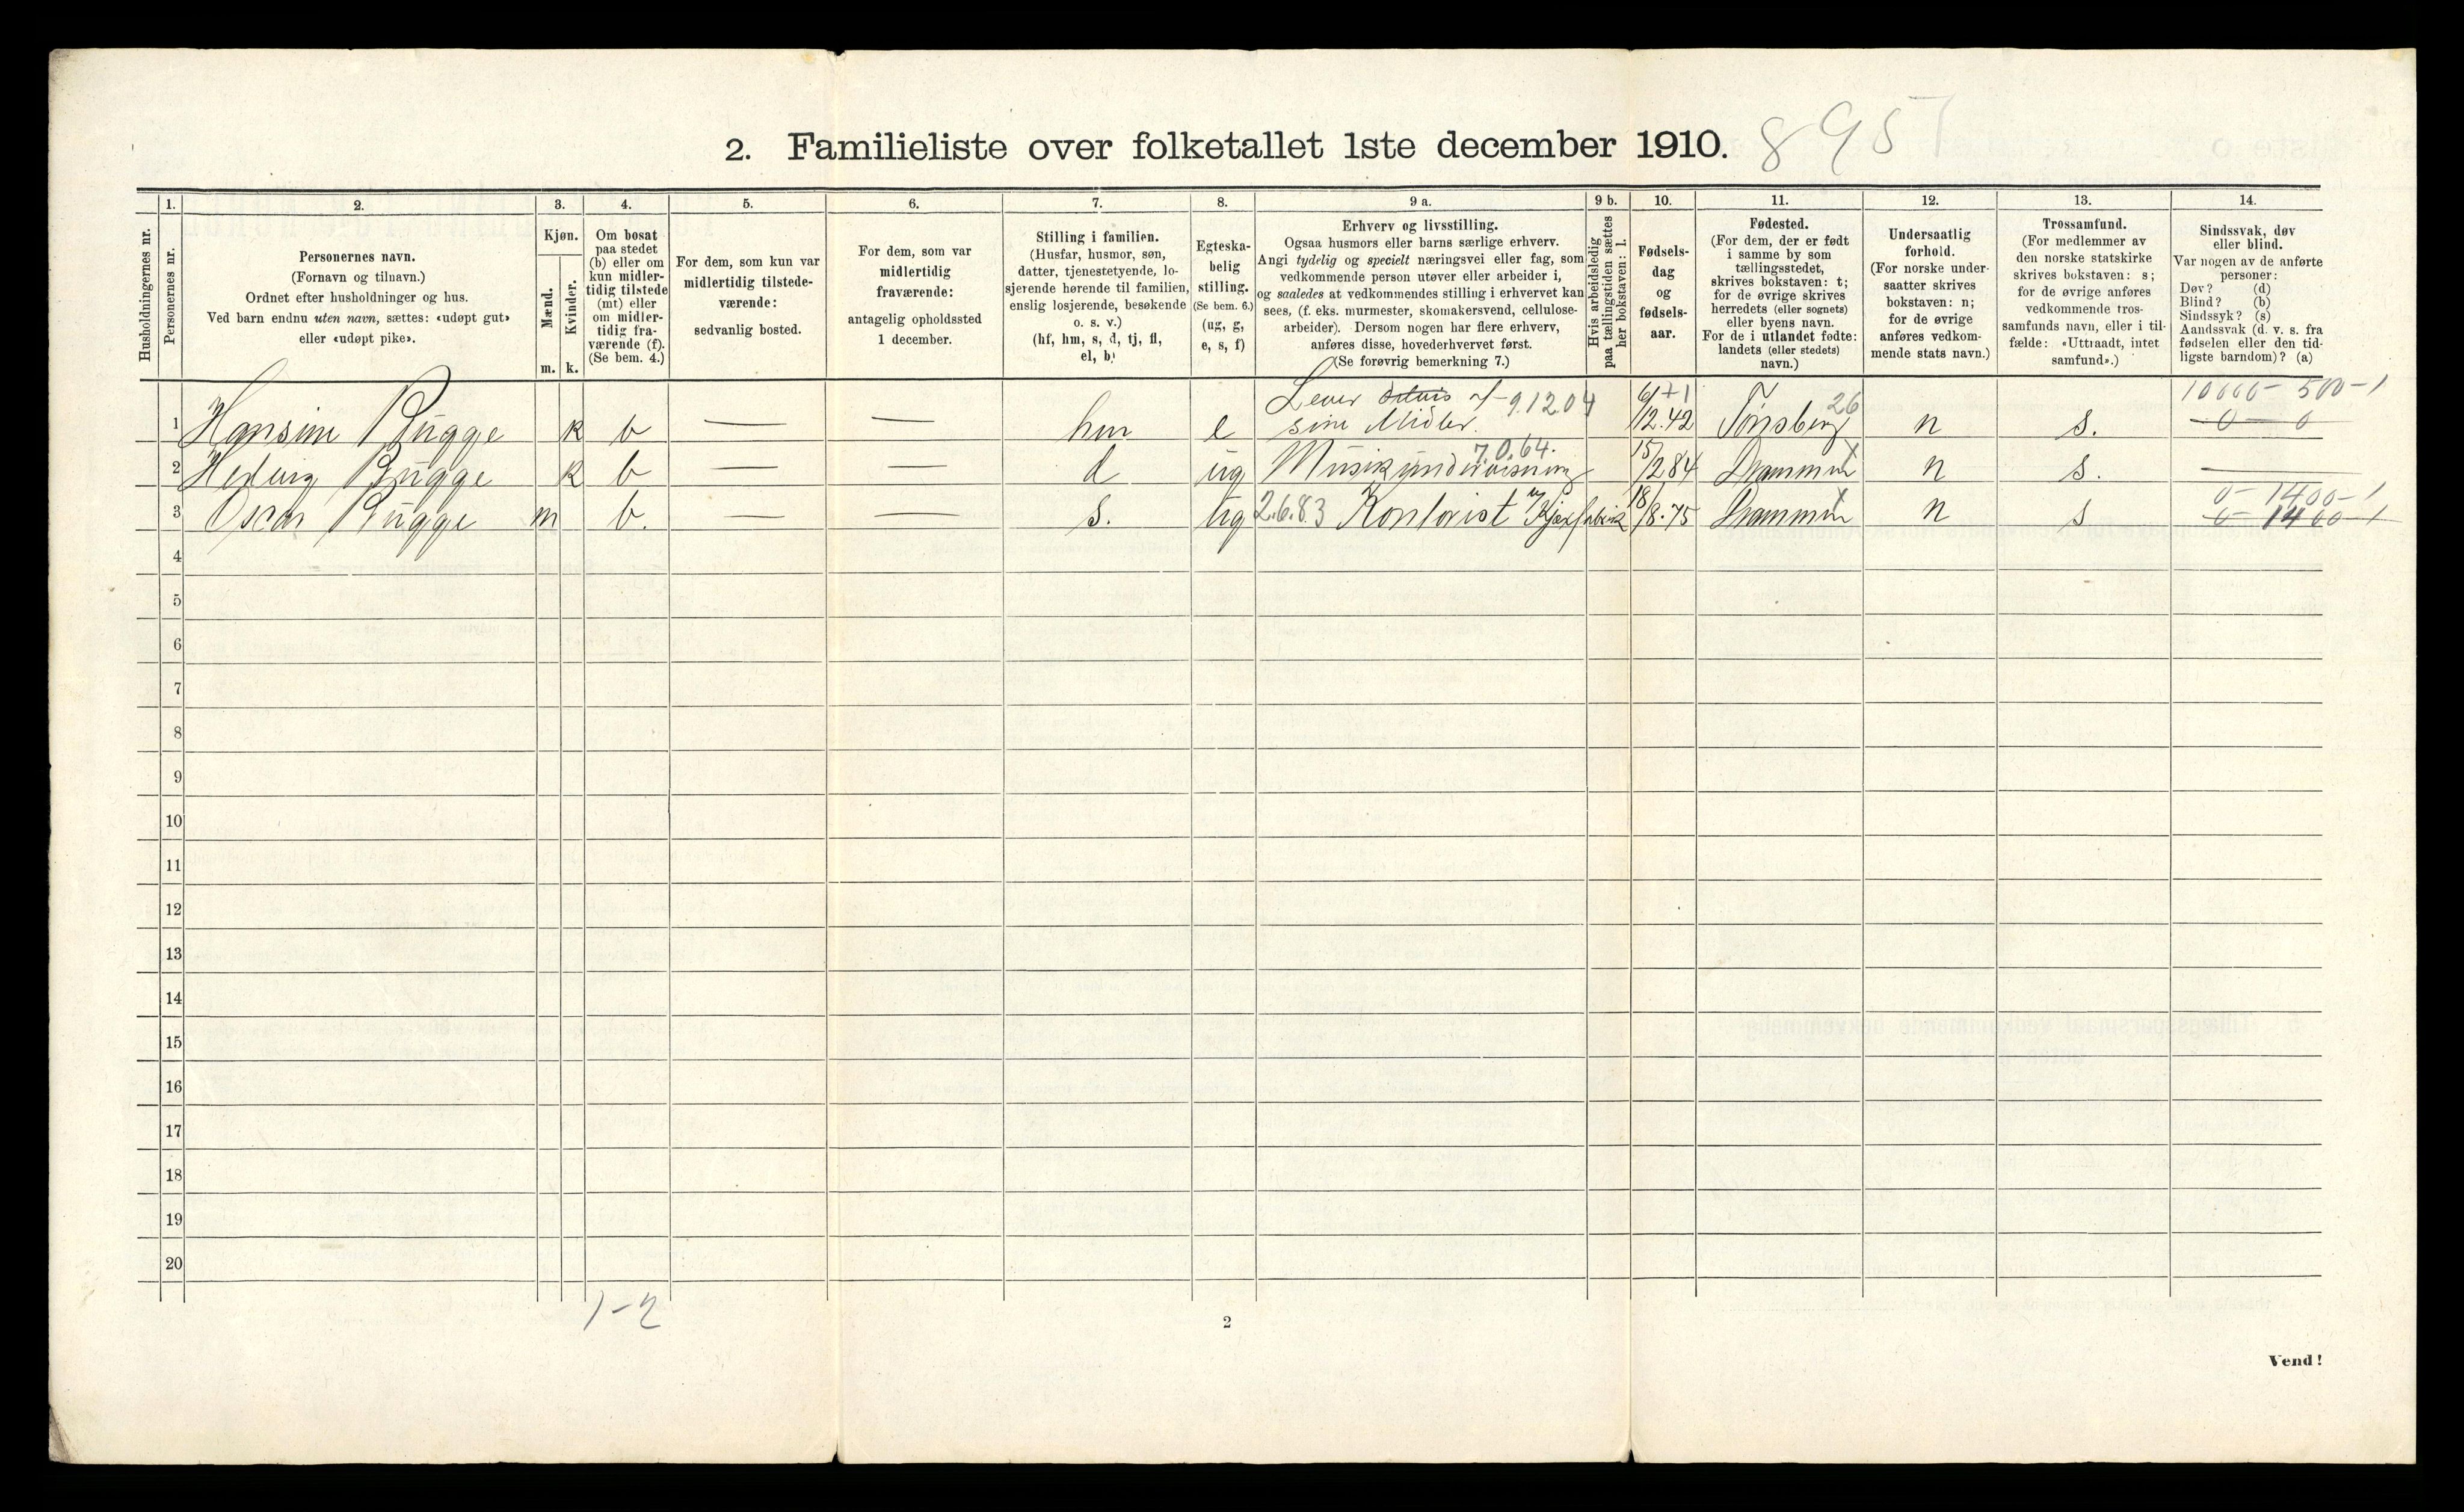 2. Familieliste over folketallet 1ste december 1910.
8951
1. 2. 3. 4. 5. 6. 7. 8. 9 a. 9 b. 10. 11. 12. 13. 14.
Husholdningernes nr.
Personernes nr.
Personernes navn.
(Fornavn og tilnavn.)
Ordnet efter husholdninger og hus.
Ved barn endnu uten navn, sættes: «udøpt gut»
eller «udøpt pike».
Kjøn.
Mænd.
Kvinder.
m. k.
Om bosat
paa stedet
(b) eller om
kun midler-
tidig tilstede
(mt) eller
om midler-
tidig fra-
værende (f).
(Se bem. 4.)
For dem, som kun var
midlertidig tilstede-
værende:
sedvanlig bosted.
For dem, som var
midlertidig
fraværende:
antagelig opholdssted
1 december.
Stilling i familien.
(Husfar, husmor, søn,
datter, tjenestetyende, lo-
sjerende hørende til familien,
enslig losjerende, besøkende
o. s. v.)
(hf, hm, s, d, tj, fl,
el, b)
Egteska-
belig
stilling.
(Se bem. 6.)
(ug, g,
e, s, f)
Erhverv og livsstilling.
Ogsaa husmors eller barns særlige erhverv.
Angi tydelig og specielt næringsvei eller fag, som
vedkommende person utøver eller arbeider i,
og saaledes at vedkommendes stilling i erhvervet kan
sees, (f. eks. murmester, skomakersvend, cellulose-
arbeider). Dersom nogen har flere erhverv,
anføres disse, hovederhvervet først.
(Se forøvrig bemerkning 7.)
Hvis arbeidsledig
paa tællingstiden sættes
her bokstaven: l.
Fødsels-
dag
og
fødsels-
aar.
Fødested.
(For dem, der er født
i samme by som
tællingsstedet,
skrives bokstaven: t;
for de øvrige skrives
herredets (eller sognets)
eller byens navn.
For de i utlandet fødte:
landets (eller stedets)
navn.)
Undersaatlig
forhold.
(For norske under-
saatter skrives
bokstaven: n;
for de øvrige
anføres vedkom-
mende stats navn.)
Trossamfund.
(For medlemmer av
den norske statskirke
skrives bokstaven: s;
for de øvrige anføres
vedkommende tros-
samfunds navn, eller i til-
fælde: «Uttraadt, intet
samfund».)
Sindssvak, døv
eller blind.
Var nogen av de anførte
personer:
Døv? (d)
Blind? (b)
Sindssyk? (s)
Aandssvak (d. v. s. fra
fødselen eller den tid-
ligste barndom)? (a)
Lever af 9.12.04 10000 - 500 - 1
1 Hansine Bugge k b — — hm e sine Midler. 6/12.42 Tønsberg 26 n s. 0 - 0
2 Hedvig Bugge k b — — d ug Musikundervisning 7.0.64. 15/2 84 Drammen n s. —
0 - 1400 - 1
3 Oscar Bugge m b. — — s. ug 2.6.83 Kontorist 18/8.75 Drammen n s 0 - 1400 - 1
4
5
6
7
8
9
10
11
12
13
14
15
16
17
18
19
20
1-2
2
Vend!